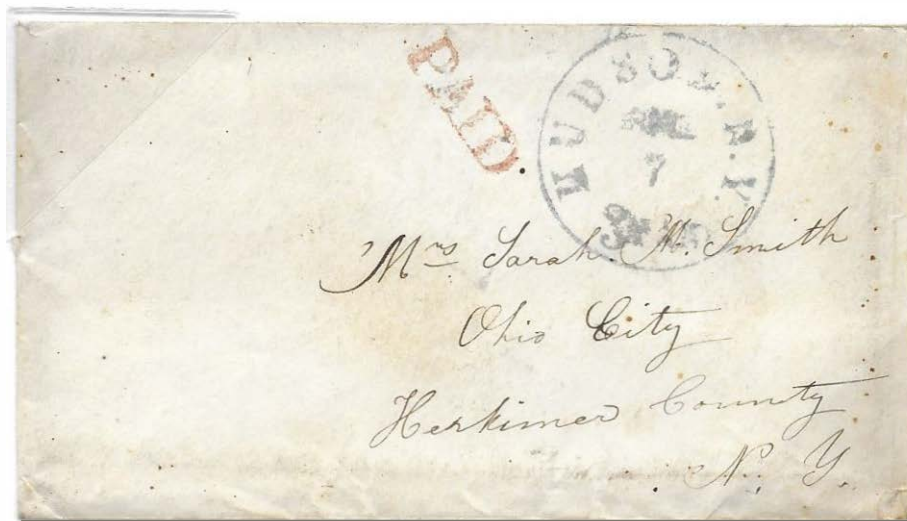 PAID
HUDSON. N.Y.
7
Mrs Sarah. M. Smith
Ohio City
Herkimer County
N. Y.